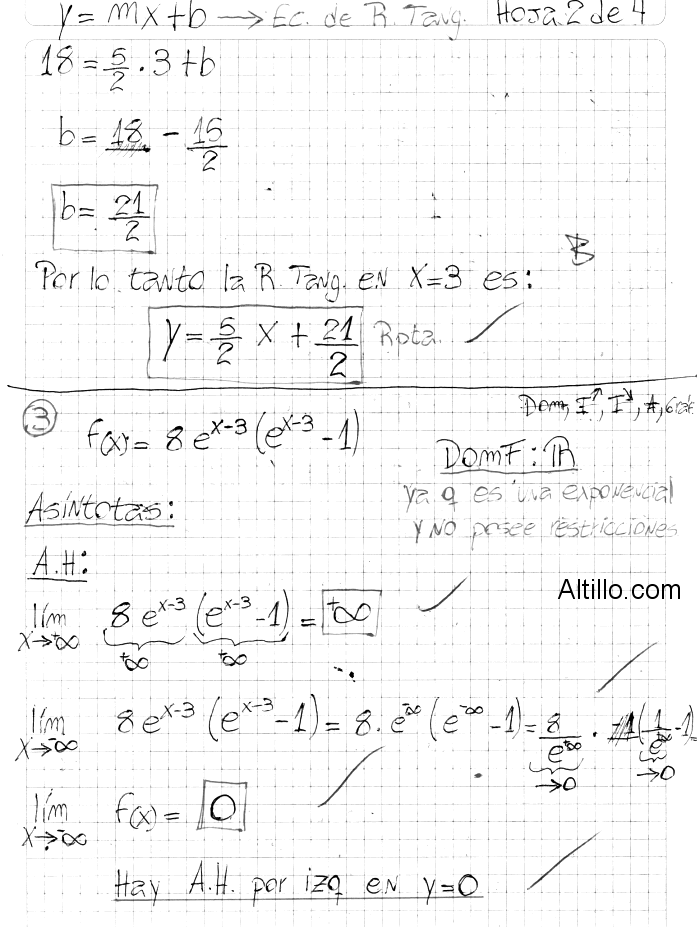 y = mx + b → Ec. de R. Tang. Hoja 2 de 4
18 = 5/2 · 3 + b
b = 18 - 15/2
b = 21/2
B
Por lo tanto la R. Tang. en x=3 es:
y = 5/2 x + 21/2 Rpta.
③ Dom, I↑, I↓, A, Graf
f(x) = 8 e^(x-3) (e^(x-3) - 1)
Dom F : ℝ
ya q es una exponencial
y no posee restricciones
Asíntotas:
A.H:
Altillo.com
lím x→+∞ 8 e^(x-3) (e^(x-3) - 1) = +∞
+∞ +∞
lím x→-∞ 8 e^(x-3) (e^(x-3) - 1) = 8 · e^-∞ (e^-∞ - 1) = 8/e^+∞ · (1/e^+∞ - 1) =
→0 →0
lím x→-∞ f(x) = 0
Hay A.H. por izq en y=0